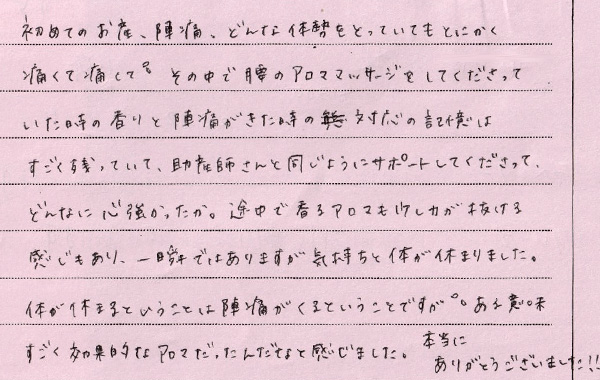 初めてのお産、陣痛、どんな体勢をとっていてもとにかく
痛くて痛くて。その中で腰のアロママッサージをしてくださって
いた時の香りと陣痛がきた時の対応の記憶は
すごく残っていて、助産師さんと同じようにサポートしてくださって、
どんなに心強かったか。途中で香るアロマも少し力が抜ける
感じもあり、一瞬ではありますが気持ちと体が休まりました。
体が休まるということは陣痛がくるということですが。ある意味
すごく効果的なアロマだったんだなと感じました。本当に
ありがとうございました!!